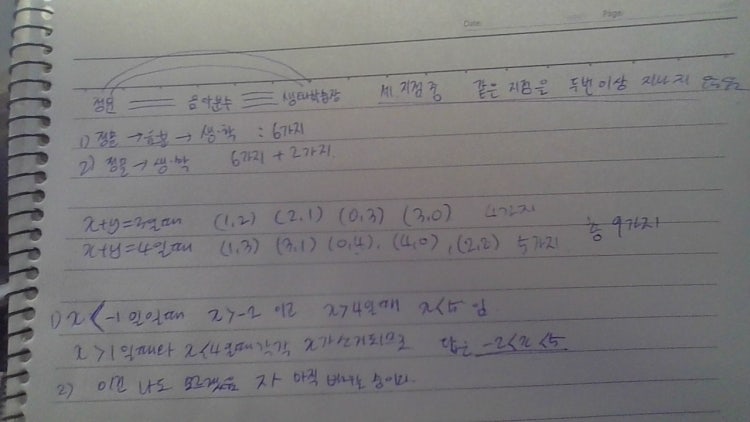 Date: Page:
정문 음악분수 생태학습장 세 지점 중 같은 지점을 두번이상 지나지 않음
1) 정문 → 음·분 → 생·학 : 6가지
2) 정문 → 생·학 6가지 + 2가지
x+y=3일때 (1,2) (2,1) (0,3) (3,0) 4가지
x+y=4일때 (1,3) (3,1) (0,4), (4,0), (2,2) 5가지 총 9가지
1) x<-1 일때 x>-2 이고 x>4일때 x<5 임
x>1일때와 x<4일때 각각 x가 답은 -2<x<5
2) 이건 나도 아직